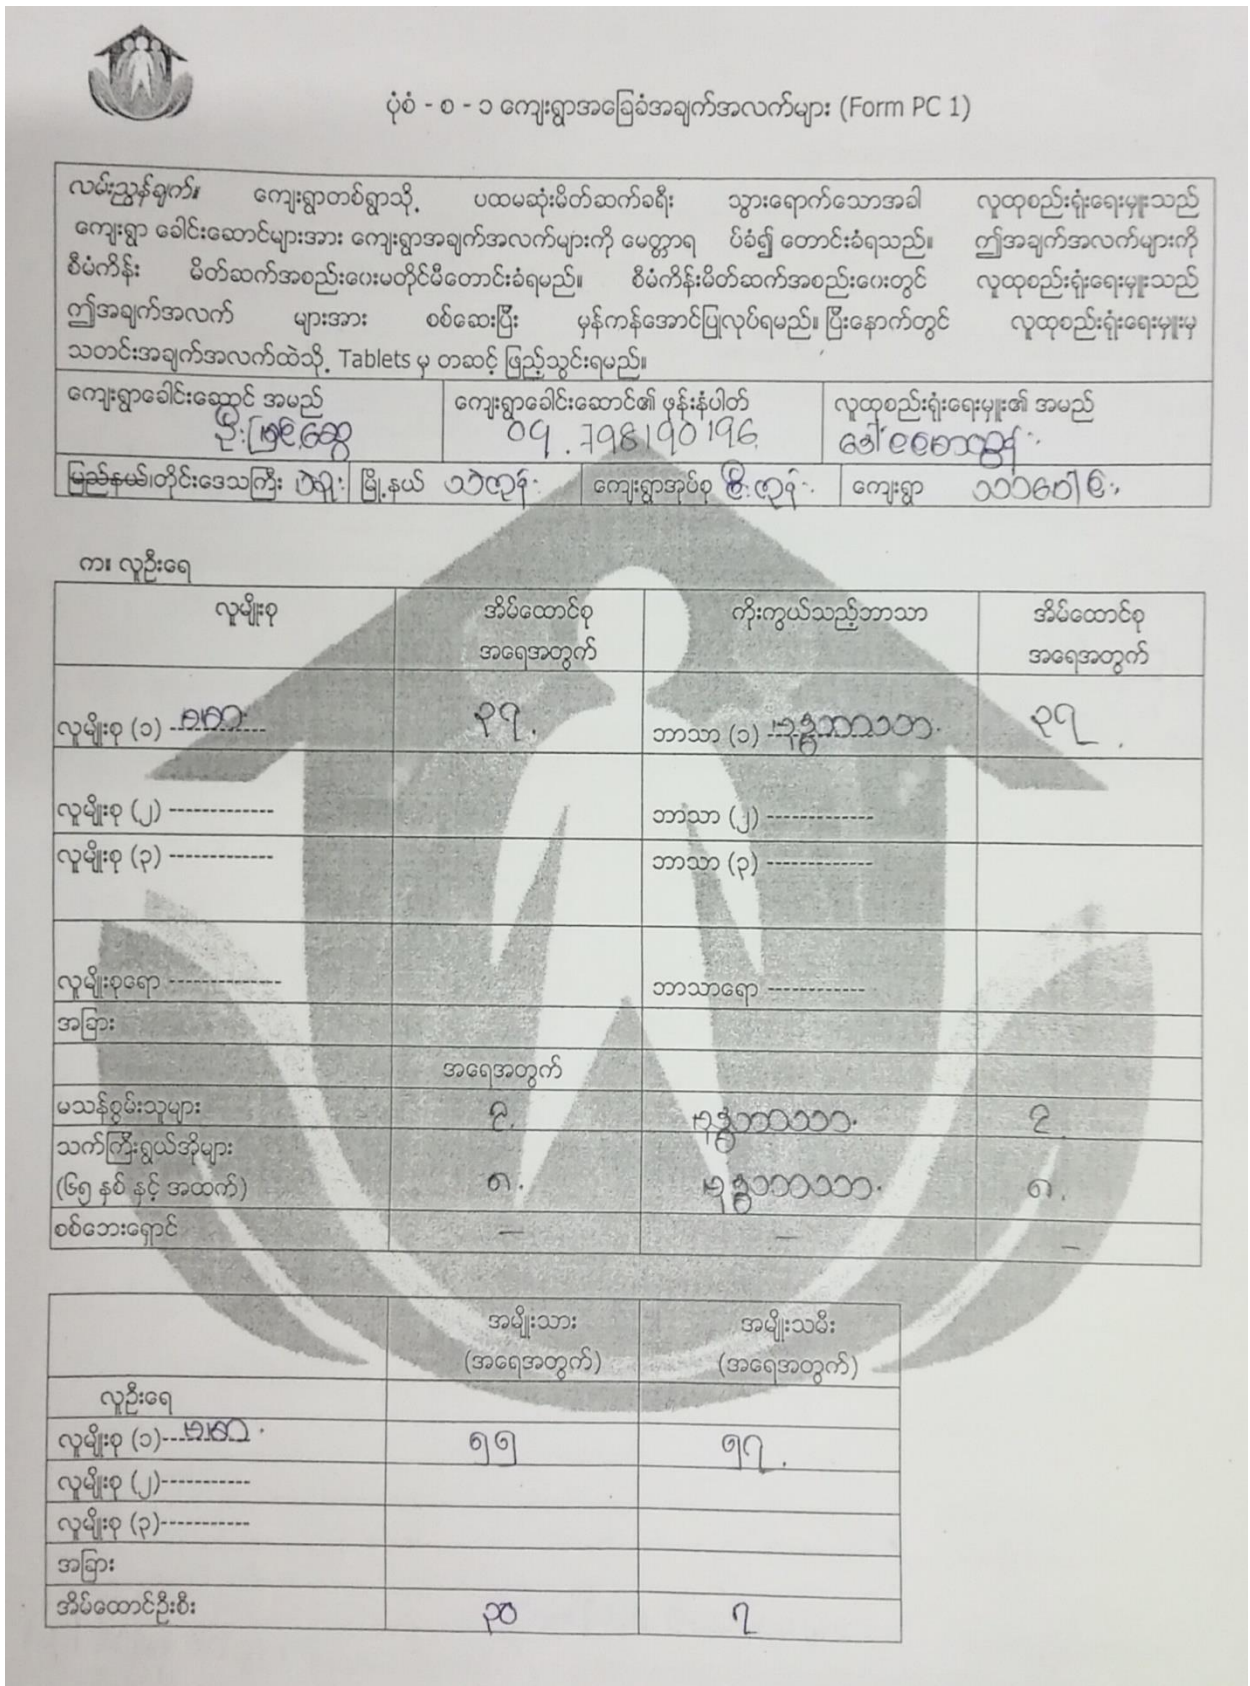 ပုံစံ - စ - ၁ ကျေးရွာအခြေခံအချက်အလက်များ (Form PC 1)
လမ်းညွှန်ချက်။ ကျေးရွာတစ်ရွာသို့ ပထမဆုံးမိတ်ဆက်ခရီး သွားရောက်သောအခါ လူထုစည်းရုံးရေးမှူးသည်
ကျေးရွာ ခေါင်းဆောင်များအား ကျေးရွာအချက်အလက်များကို မေတ္တာရ ပ်ခံ၍ တောင်းခံရသည်။ ဤအချက်အလက်များကို
စီမံကိန်း မိတ်ဆက်အစည်းဝေးမတိုင်မီတောင်းခံရမည်။ စီမံကိန်းမိတ်ဆက်အစည်းဝေးတွင် လူထုစည်းရုံးရေးမှူးသည်
ဤအချက်အလက် များအား စစ်ဆေးပြီး မှန်ကန်အောင်ပြုလုပ်ရမည်။ ပြီးနောက်တွင် လူထုစည်းရုံးရေးမှူးမှ
သတင်းအချက်အလက်ထဲသို့ Tablets မှ တဆင့် ဖြည့်သွင်းရမည်။
ကျေးရွာခေါင်းဆောင် အမည် ကျေးရွာခေါင်းဆောင်၏ ဖုန်းနံပါတ် လူထုစည်းရုံးရေးမှူး၏ အမည်
09.798190196
ပြည်နယ်၊တိုင်းဒေသကြီး ပဲခူး မြို့နယ် ကျေးရွာအုပ်စု ကျေးရွာ
က။ လူဦးရေ
လူမျိုးစု အိမ်ထောင်စု ကိုးကွယ်သည့်ဘာသာ အိမ်ထောင်စု
အရေအတွက် အရေအတွက်
လူမျိုးစု (၁) ဗမာ ၃၇ ဘာသာ (၁) ဗုဒ္ဓဘာသာ ၃၇
လူမျိုးစု (၂) ------------- ဘာသာ (၂) -------------
လူမျိုးစု (၃) ------------- ဘာသာ (၃) -------------
လူမျိုးစုရော -------------- ဘာသာရော ------------
အခြား
အရေအတွက်
မသန်စွမ်းသူများ ၃ ဗုဒ္ဓဘာသာ ၃
သက်ကြီးရွယ်အိုများ
(၆၅ နှစ် နှင့် အထက်) ၈ ဗုဒ္ဓဘာသာ ၈
စစ်ဘေးရှောင် – – –
အမျိုးသား အမျိုးသမီး
(အရေအတွက်) (အရေအတွက်)
လူဦးရေ
လူမျိုးစု (၁) ဗမာ ၅၅ ၅၇
လူမျိုးစု (၂)-----------
လူမျိုးစု (၃)-----------
အခြား
အိမ်ထောင်ဦးစီး ၃၀ ၇